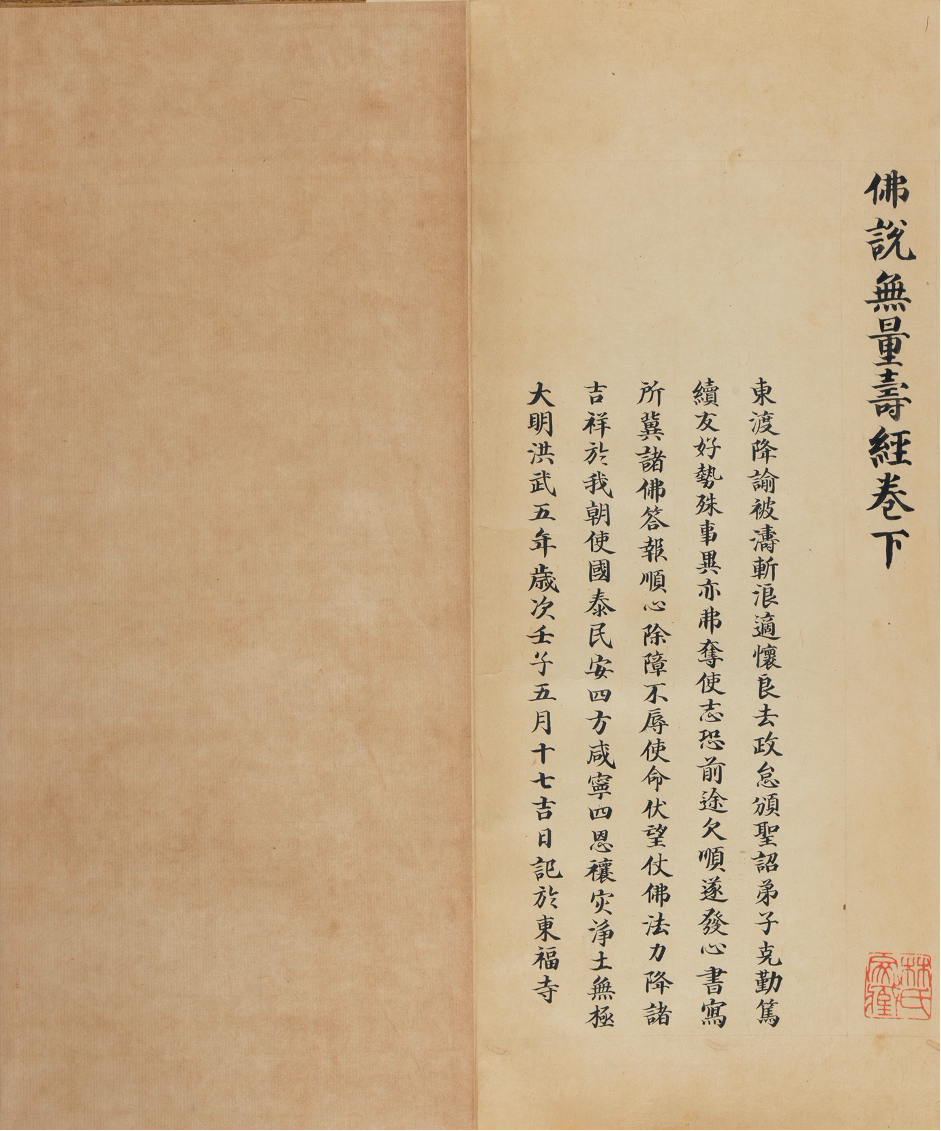 佛說無量壽經卷下
東渡降諭被濤斬浪適懷良去政怠頒聖詔弟子克勤篤
續友好勢殊事異亦弗奪使志恐前途欠順遂發心書寫
所冀諸佛答報順心除障不辱使命伏望仗佛法力降諸
吉祥於我朝使國泰民安四方咸寧四恩禳灾淨土無極
大明洪武五年歲次壬子五月十七吉日記於東福寺